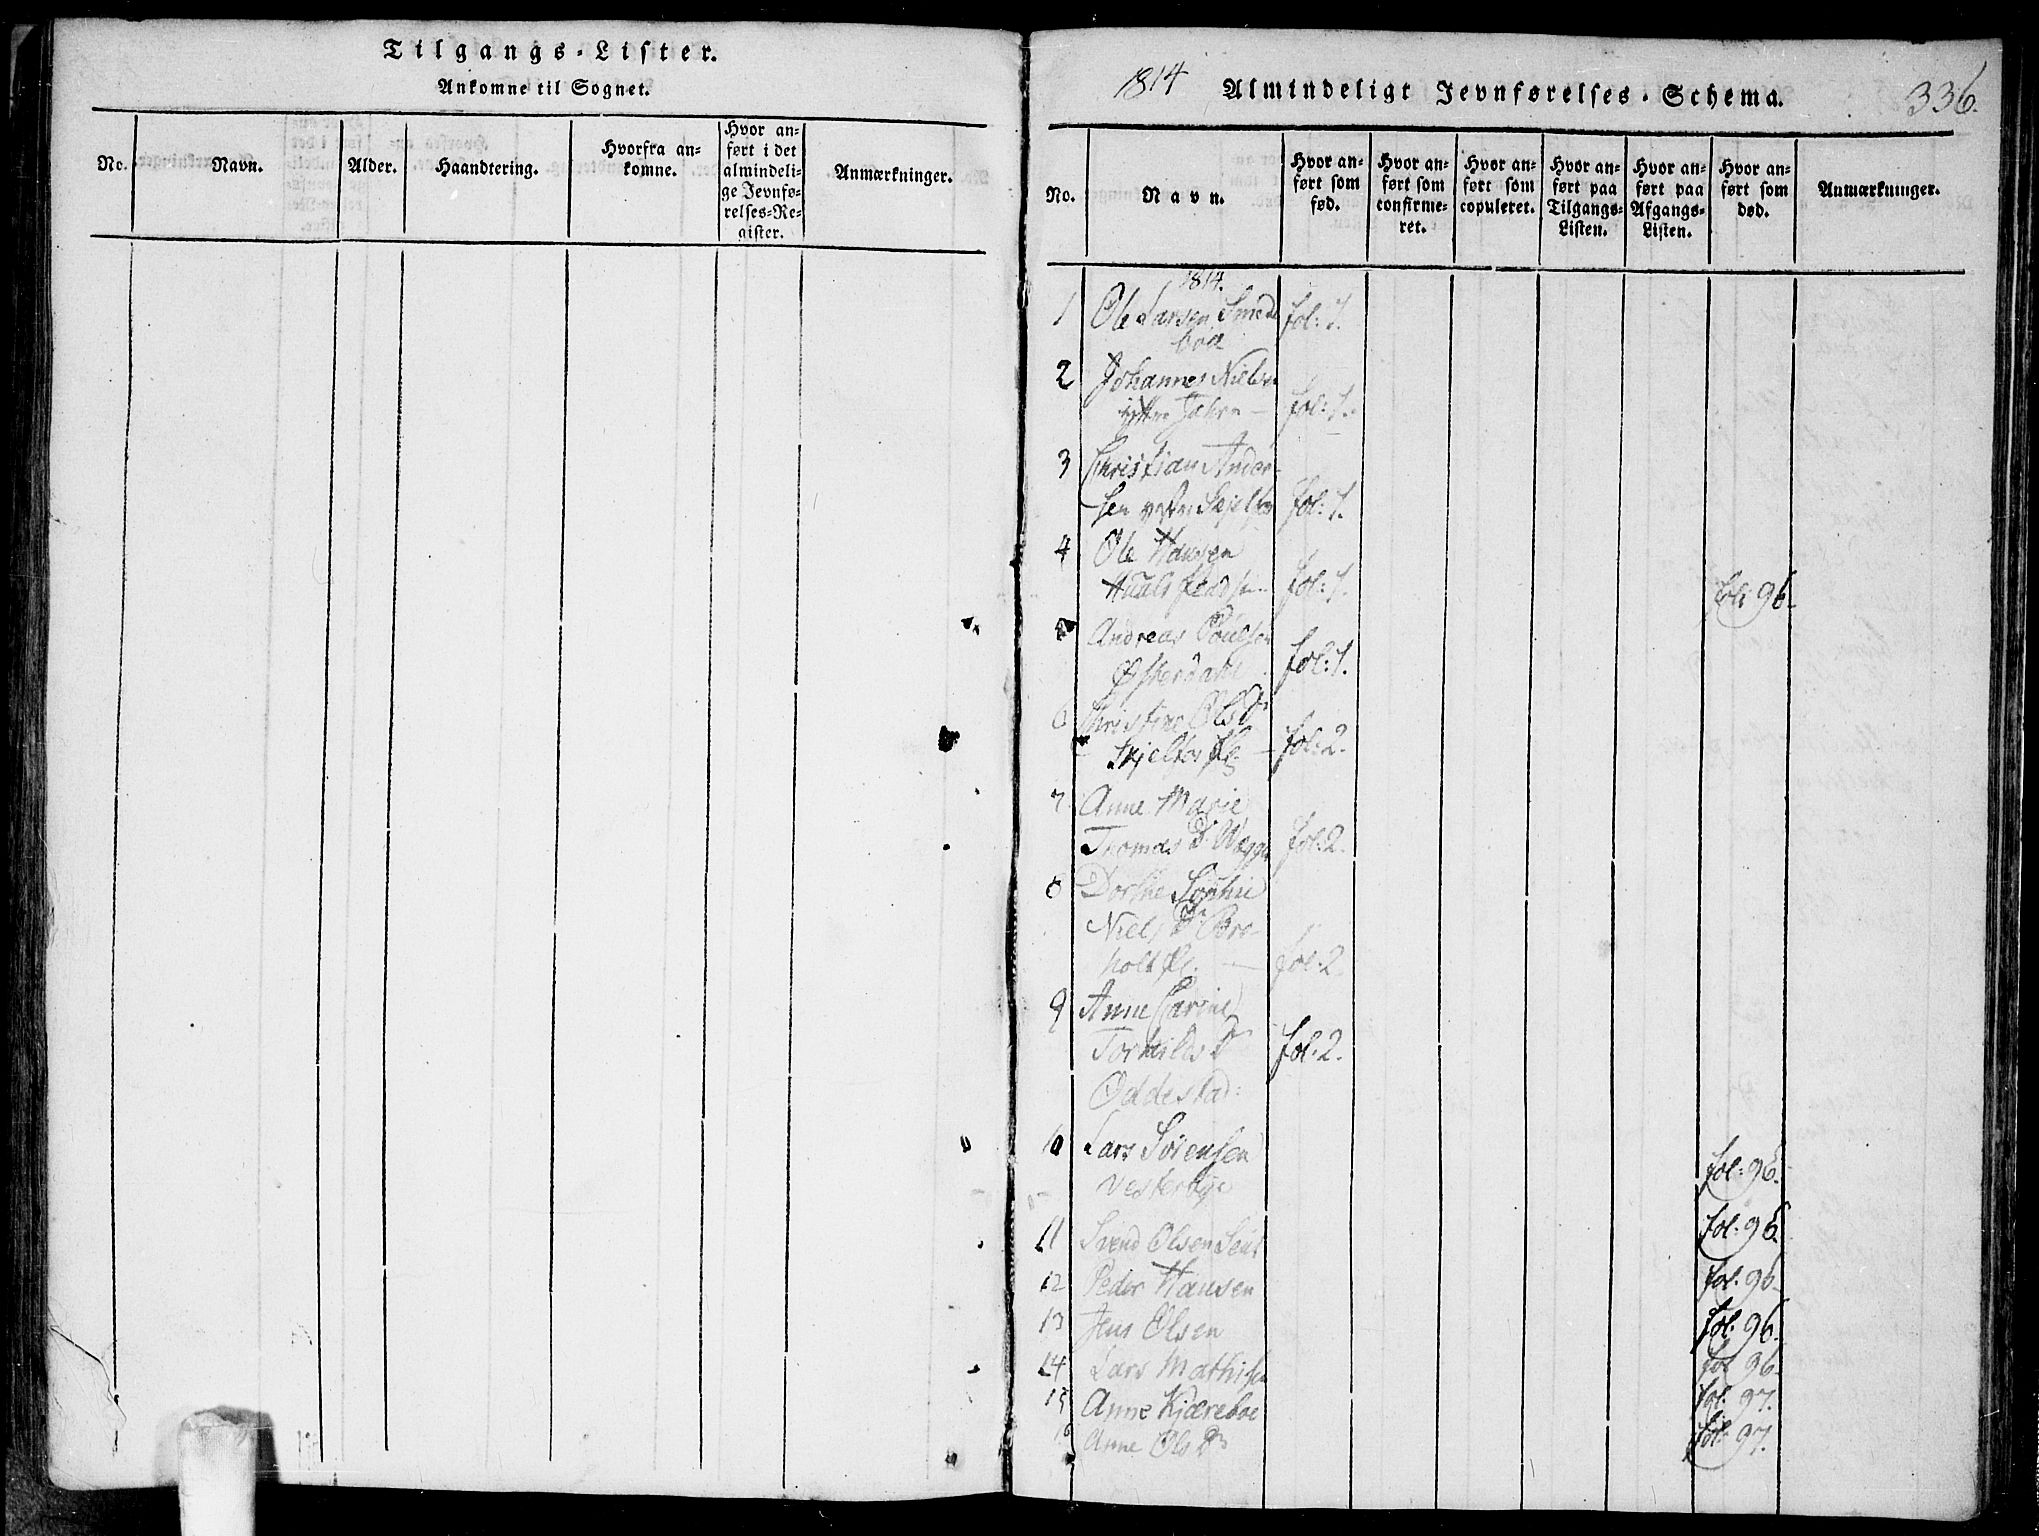 Tilgangs-Lister.
Ankomne til Sognet.
No.
Navn.
Alder.
Haandtering.
Hvorfra an-
komne.
Hvor an-
ført i det
almindeli-
ge Jevnfø-
relses-Re-
gister.
Anmærkninger.
1814 Almindeligt Jevnførelses-Schema. 336.
No.
Navn.
Hvor an-
ført som
fød.
Hvor an-
ført som
confirme-
ret.
Hvor an-
ført som
copuleret.
Hvor an-
ført paa
Tilgangs-
Listen.
Hvor an-
ført paa
Afgangs-
Listen.
Hvor an-
ført som
død.
Anmærkninger.
1814.
1 Ole Larsen Smeds fol: 1.
boe
2 Johannes Nielsen
fol: 1.
3 Christian Ander-
sen fol: 1.
4 Ole Hansen
fol: 1. fol: 96
Andreas Poulsen
Østerdahl fol: 1.
6 Christine Ols Dr
fol: 2.
7 Anne Marie
Thomas Dr fol: 2.
8 Dorthe Sophie
Niels Dr Bro-
holt fol: 2
9 Anne Carine
Torkilds Dr fol: 2.
Oddestad:
10 Lars Sörensen
fol: 96.
11 Svend Olsen fol: 96.
12 Peder Hansen fol: 96
13 Jens Olsen fol: 96.
14 Lars Mathisen fol 96
15 Anne Kjæreboe fol: 97.
16 Anne Ols Dr fol: 97.